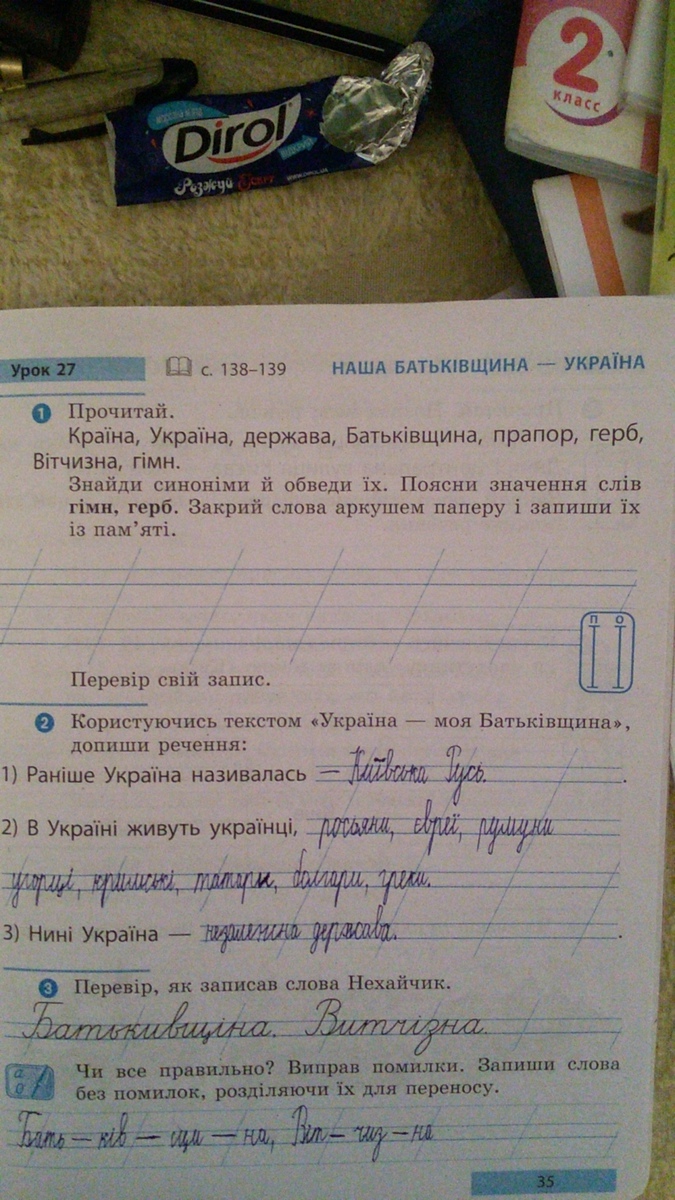 2
класс
Dirol
Розжуй
Урок 27 с. 138–139 НАША БАТЬКІВЩИНА — УКРАЇНА
1 Прочитай.
Країна, Україна, держава, Батьківщина, прапор, герб,
Вітчизна, гімн.
Знайди синоніми й обведи їх. Поясни значення слів
гімн, герб. Закрий слова аркушем паперу і запиши їх
із пам'яті.
П О
Перевір свій запис.
2 Користуючись текстом «Україна — моя Батьківщина»,
допиши речення:
1) Раніше Україна називалась — Київська Русь.
2) В Україні живуть українці, росьяни, євреї, румуни
угорці, кримські, татары, болгари, греки.
3) Нині Україна — незалежна держава.
3 Перевір, як записав слова Нехайчик.
Батькивщіна. Витчізна.
Чи все правильно? Виправ помилки. Запиши слова
без помилок, розділяючи їх для переносу.
Бать – ків – щи – на, Віт – чиз – на
35